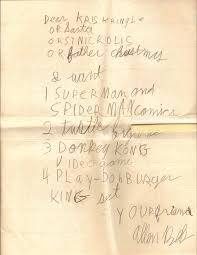 Dear KRIS KRINGLE
OR Santa
OR STNICROLIC
OR father christmas
& want
1 SUPERMan and
SPIDERMAN comics
2 turtle
3 Donkey KONG
VIDEO game
4 PLay-DOh BURGER
KING set
YOUR friend